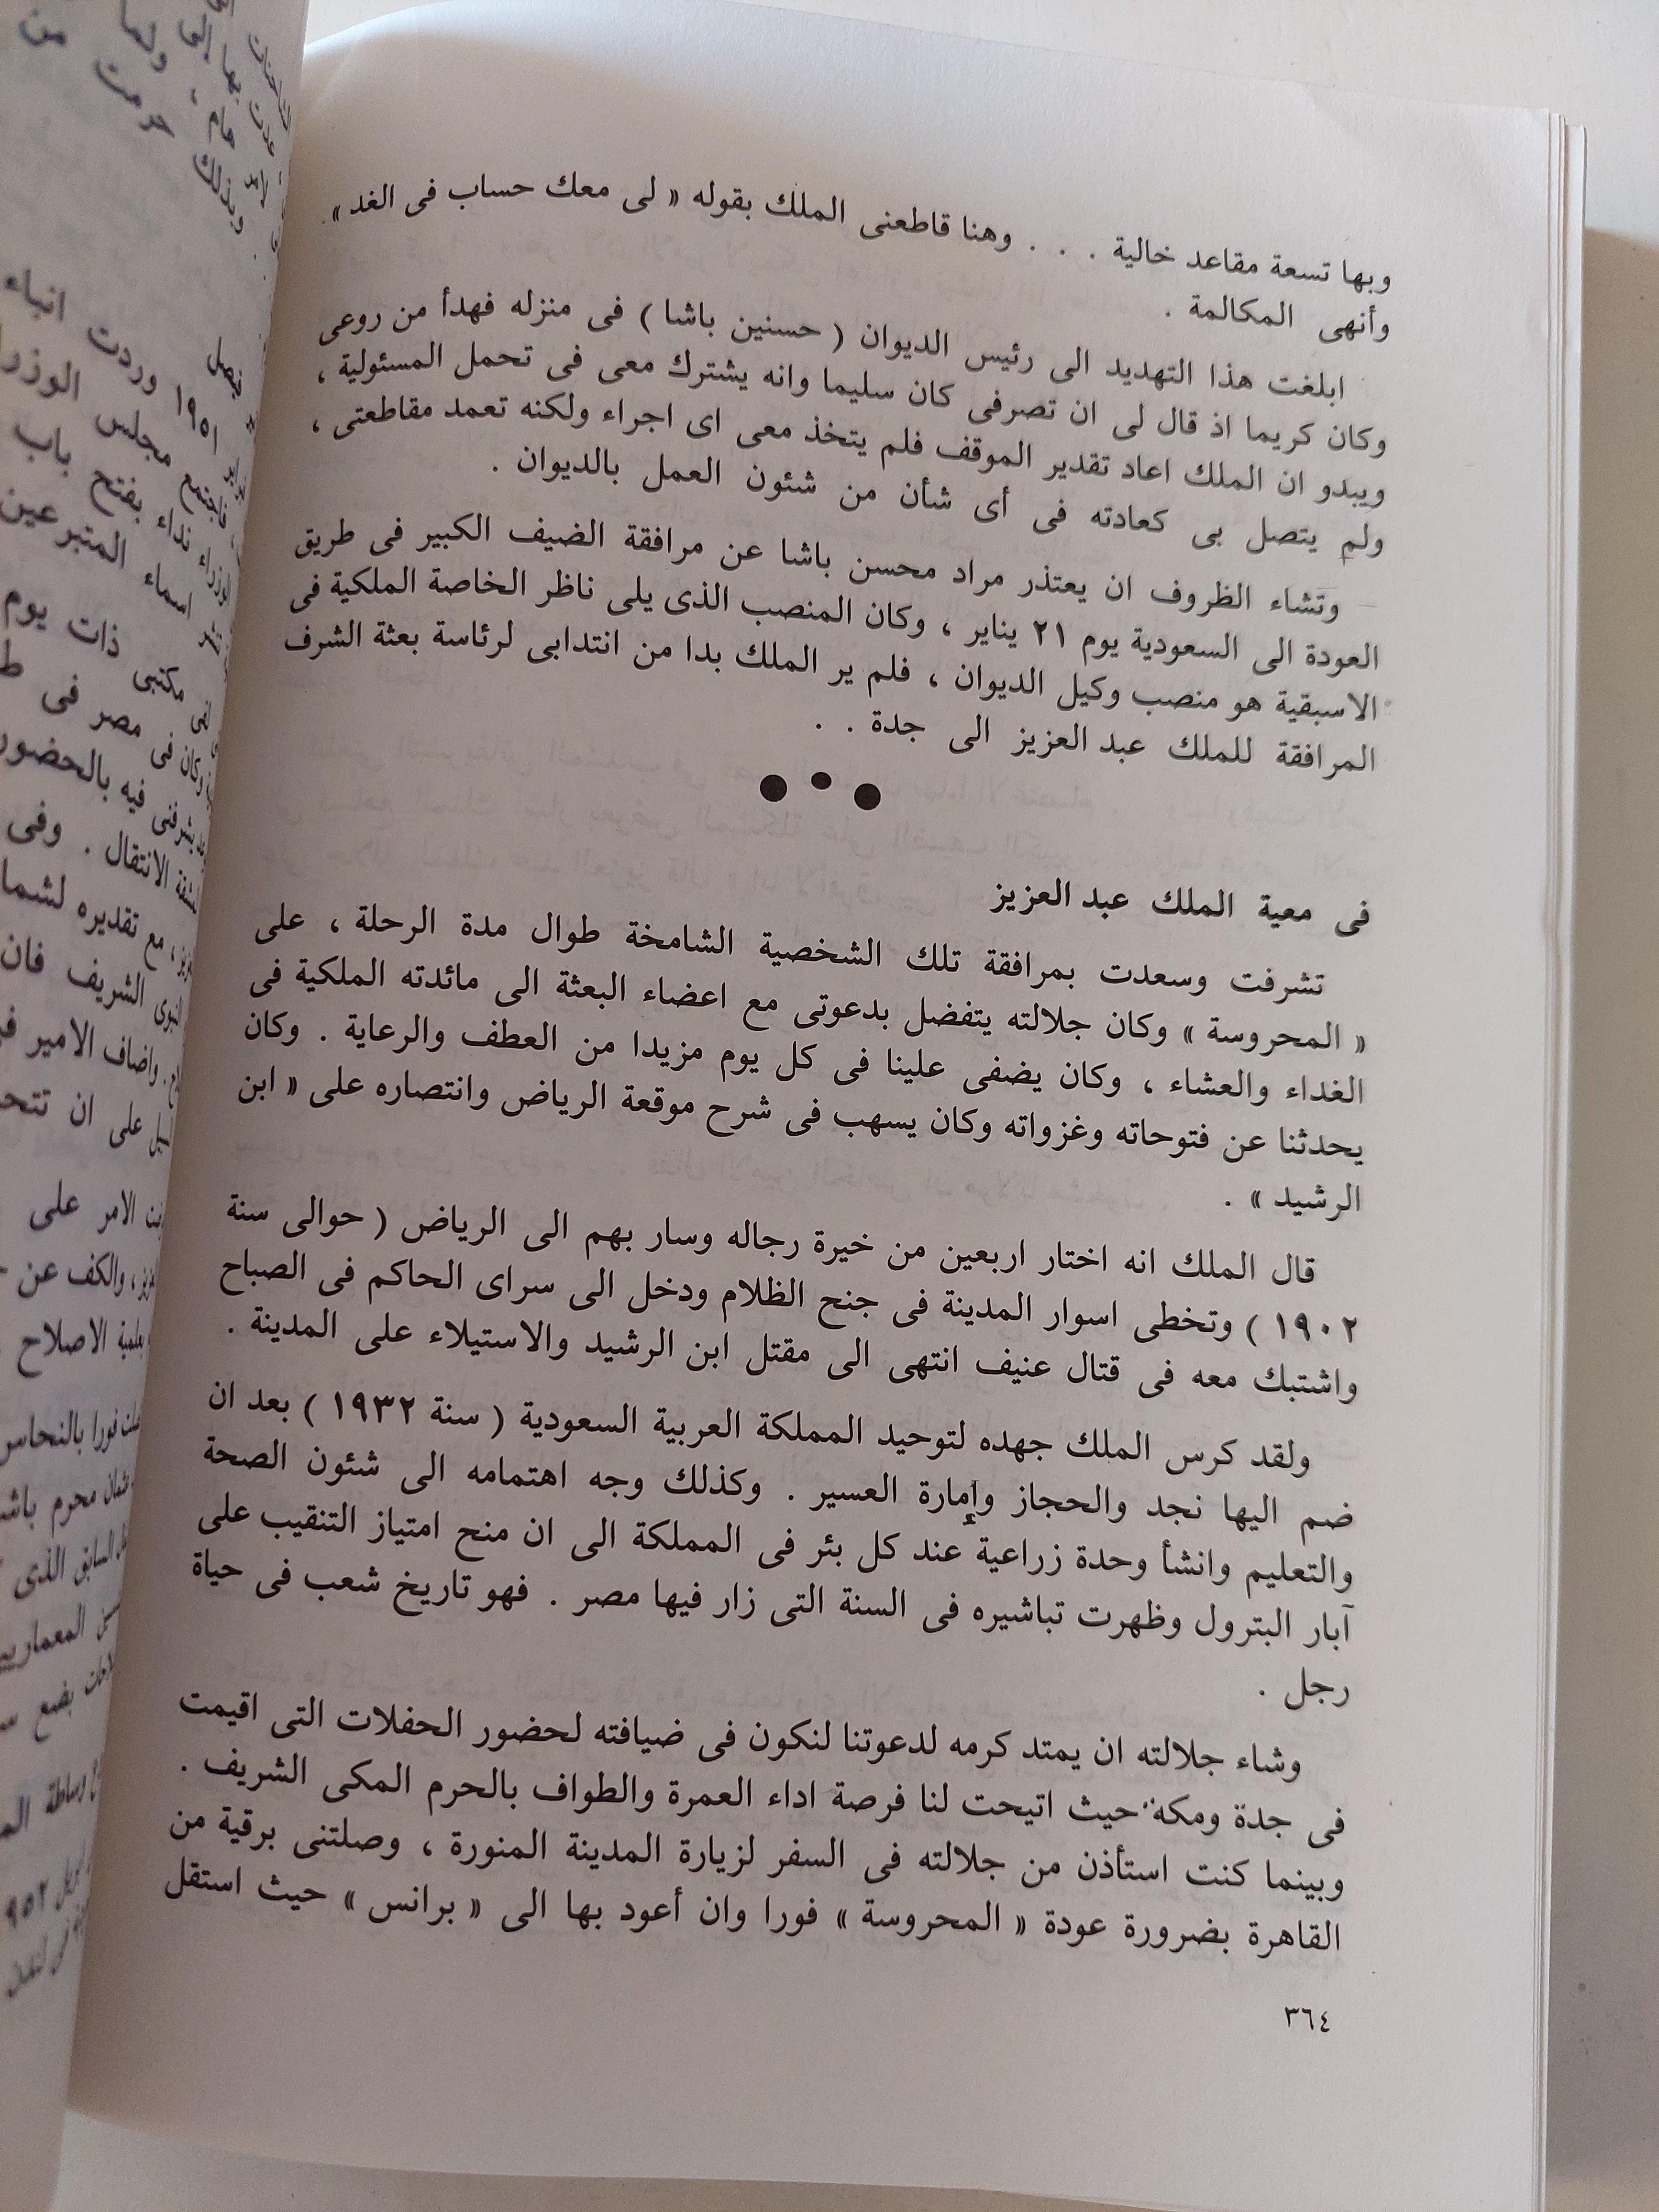 وبها تسعة مقاعد خالية . . . وهنا قاطعنى الملك بقوله « لى معك حساب فى الغد » .
وأنهى المكالمة .
ابلغت هذا التهديد الى رئيس الديوان ( حسنين باشا ) فى منزله فهدأ من روعى
وكان كريما اذ قال لى ان تصرفى كان سليما وانه يشترك معى فى تحمل المسئولية ،
ويبدو ان الملك اعاد تقدير الموقف فلم يتخذ معى اى اجراء ولكنه تعمد مقاطعتى ،
ولم يتصل بى كعادته فى أى شأن من شئون العمل بالديوان .
وتشاء الظروف ان يعتذر مراد محسن باشا عن مرافقة الضيف الكبير فى طريق
العودة الى السعودية يوم ٢١ يناير ، وكان المنصب الذى يلى ناظر الخاصة الملكية فى
الاسبقية هو منصب وكيل الديوان ، فلم ير الملك بدا من انتدابى لرئاسة بعثة الشرف
المرافقة للملك عبد العزيز الى جدة . .
فى معية الملك عبد العزيز
تشرفت وسعدت بمرافقة تلك الشخصية الشامخة طوال مدة الرحلة ، على
« المحروسة » وكان جلالته يتفضل بدعوتى مع اعضاء البعثة الى مائدته الملكية فى
الغداء والعشاء ، وكان يضفى علينا فى كل يوم مزيدا من العطف والرعاية . وكان
يحدثنا عن فتوحاته وغزواته وكان يسهب فى شرح موقعة الرياض وانتصاره على « ابن
الرشيد » .
قال الملك انه اختار اربعين من خيرة رجاله وسار بهم الى الرياض ( حوالى سنة
١٩٠٢ ) وتخطى اسوار المدينة فى جنح الظلام ودخل الى سراى الحاكم فى الصباح
واشتبك معه فى قتال عنيف انتهى الى مقتل ابن الرشيد والاستيلاء على المدينة .
ولقد كرس الملك جهده لتوحيد المملكة العربية السعودية ( سنة ١٩٣٢ ) بعد ان
ضم اليها نجد والحجاز وإمارة العسير . وكذلك وجه اهتمامه الى شئون الصحة
والتعليم وانشأ وحدة زراعية عند كل بئر فى المملكة الى ان منح امتياز التنقيب على
آبار البترول وظهرت تباشيره فى السنة التى زار فيها مصر . فهو تاريخ شعب فى حياة
رجل .
وشاء جلالته ان يمتد كرمه لدعوتنا لنكون فى ضيافته لحضور الحفلات التى اقيمت
فى جدة ومكة حيث اتيحت لنا فرصة اداء العمرة والطواف بالحرم المكى الشريف .
وبينما كنت استأذن من جلالته فى السفر لزيارة المدينة المنورة ، وصلتنى برقية من
القاهرة بضرورة عودة « المحروسة » فورا وان أعود بها الى « برانس » حيث استقل
٣٦٤